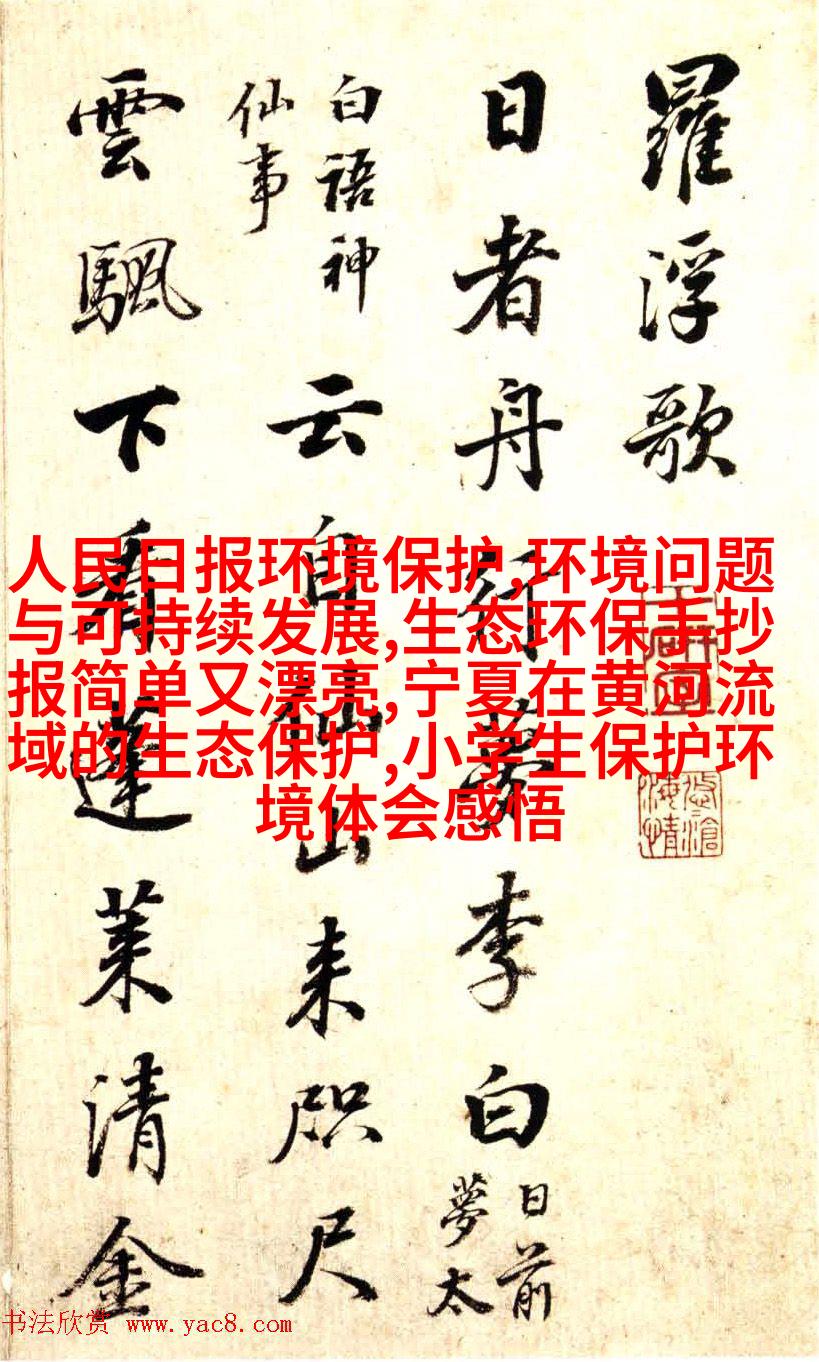 羅浮歌
日者舟行夢李白
日前
夢太
白語神
仙事
云自仙山来咫尺
雲颿下看蓬莱清金
人民日报环境保护,环境问题
与可持续发展,生态环保手抄
报简单又漂亮,宁夏在黄河流
域的生态保护,小学生保护环
境体会感悟
书法欣赏 www.yac8.com